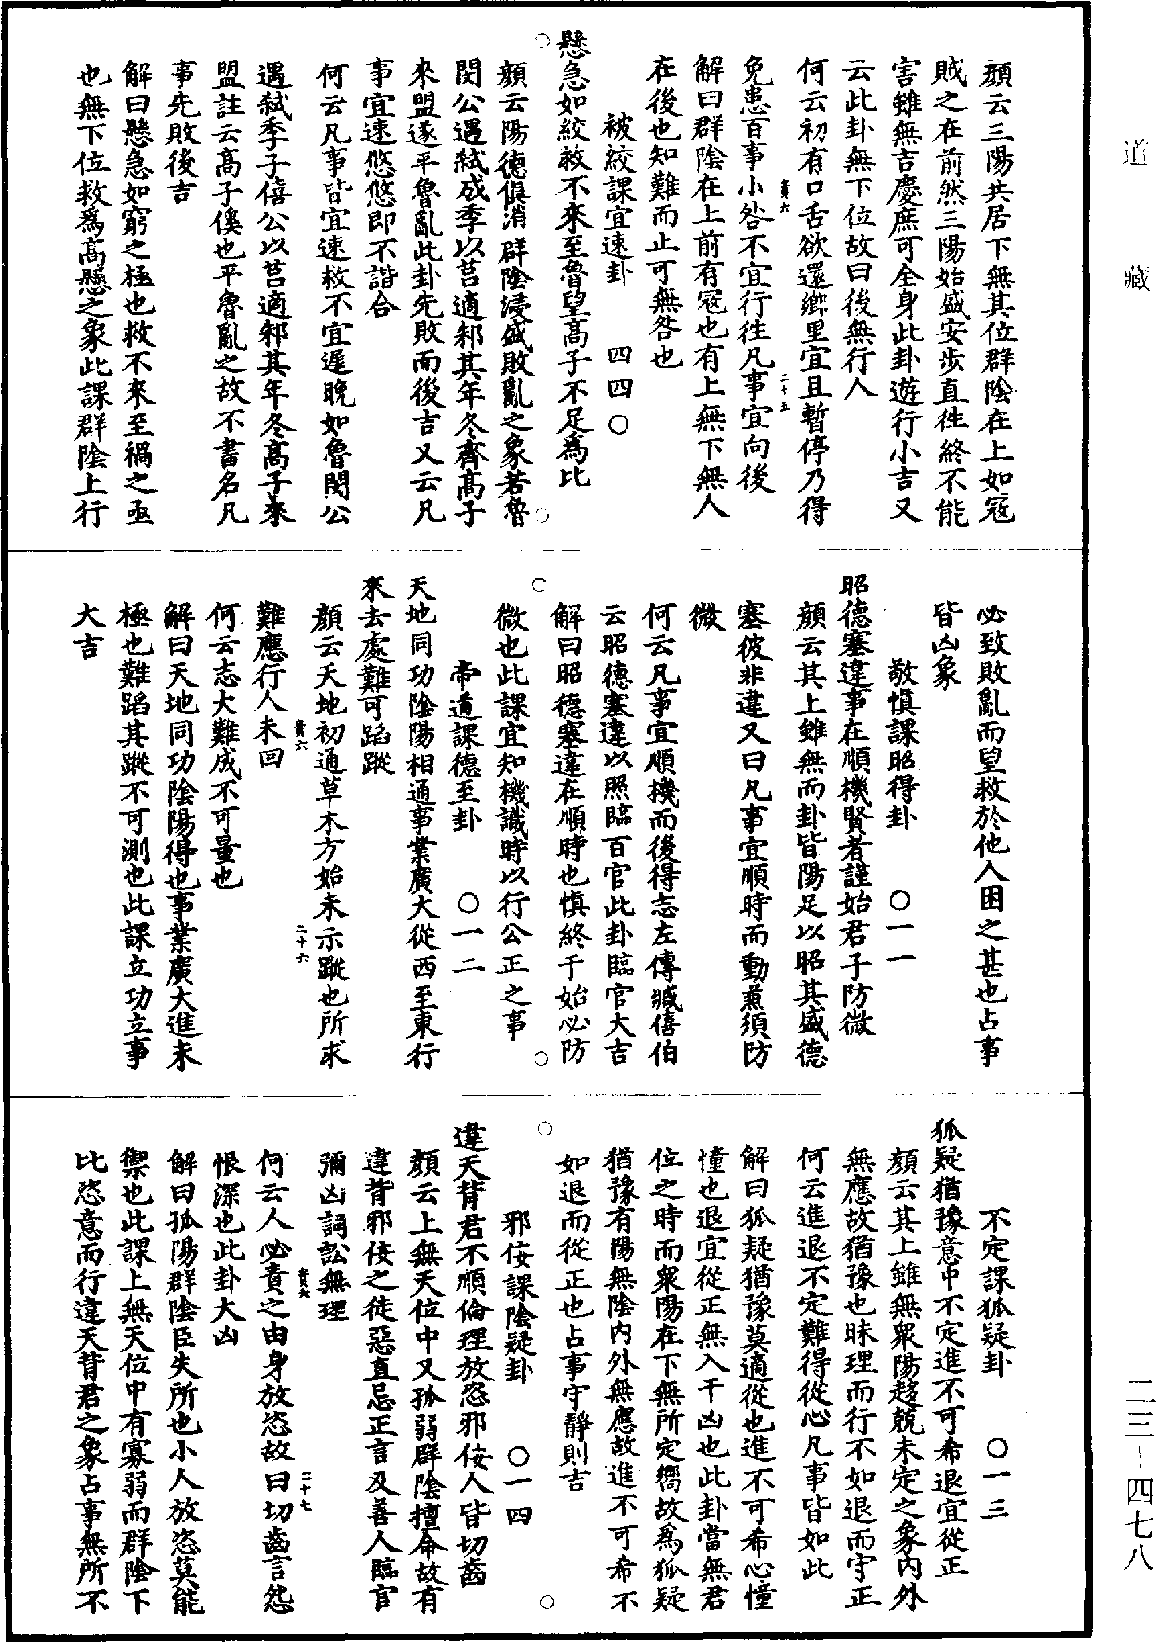 道藏
二三-四七八
顏云三陽共居下無其位群陰在上如寇
賊之在前然三陽始盛安步直往終不能
害雖無吉慶庶可全身此卦遊行小吉又
云此卦無下位故曰後無行人
何云初有口舌欲還鄉里宜且暫停乃得
免患百事小咎不宜行往凡事宜向後
解曰群陰在上前有寇也有上無下無人
在後也知難而止可無咎也
被絞課宜速卦 四四〇
懸急如絞救不來至魯望高子不足為比
顏云陽德俱消群陰浸盛敗亂之象若魯
閔公遇弒成季以莒適邾其年冬齊高子
來盟遂平魯亂此卦先敗而後吉又云凡
事宜速悠悠即不諧合
何云凡事皆宜速救不宜遲晚如魯閔公
遇弒季子僖公以莒適邾其年冬高子來
盟註云高子傒也平魯亂之故不書名凡
事先敗後吉
解曰懸急如窮之極也救不來至禍之亟
也無下位救為高懸之象此課群陰上行
必致敗亂而望救於他人困之甚也占事
皆凶象
敬慎課昭得卦 〇一一
昭德塞違事在順機賢者謹始君子防微
顏云其上雖無而卦皆陽足以昭其盛德
塞彼非違又曰凡事宜順時而動兼須防
微
何云凡事宜順機而後得志左傳臧僖伯
云昭德塞違以照臨百官此卦臨官大吉
解曰昭德塞違在順時也慎終于始必防
微也此課宜知機識時以行公正之事
帝道課德至卦 〇一二
天地同功陰陽相通事業廣大從西至東行
來去處難可蹈蹤
顏云天地初通草木方始未示蹤也所求
難應行人未回
何云志大難成不可量也
解曰天地同功陰陽得也事業廣大進未
極也難蹈其蹤不可測也此課立功立事
大吉
不定課狐疑卦 〇一三
狐疑猶豫意中不定進不可希退宜從正
顏云其上雖無眾陽趍競未定之象內外
無應故猶豫也昧理而行不如退而守正
何云進退不定難得從心凡事皆如此
解曰狐疑猶豫莫適從也進不可希心憧
憧也退宜從正無入干凶也此卦當無君
位之時而眾陽在下無所定嚮故為狐疑
猶豫有陽無陰內外無應故進不可希不
如退而從正也占事守靜則吉
邪佞課陰疑卦 〇一四
違天背君不順倫理放恣邪佞人皆切齒
顏云上無天位中又孤弱群陰擅命故有
違背邪佞之徒惡直忌正言及善人臨官
彌凶詞訟無理
何云人必責之由身放恣故曰切齒言怨
恨深也此卦大凶
解曰孤陽群陰臣失所也小人放恣莫能
禦也此課上無天位中有寡弱而群陰下
比恣意而行違天背君之象占事無所不